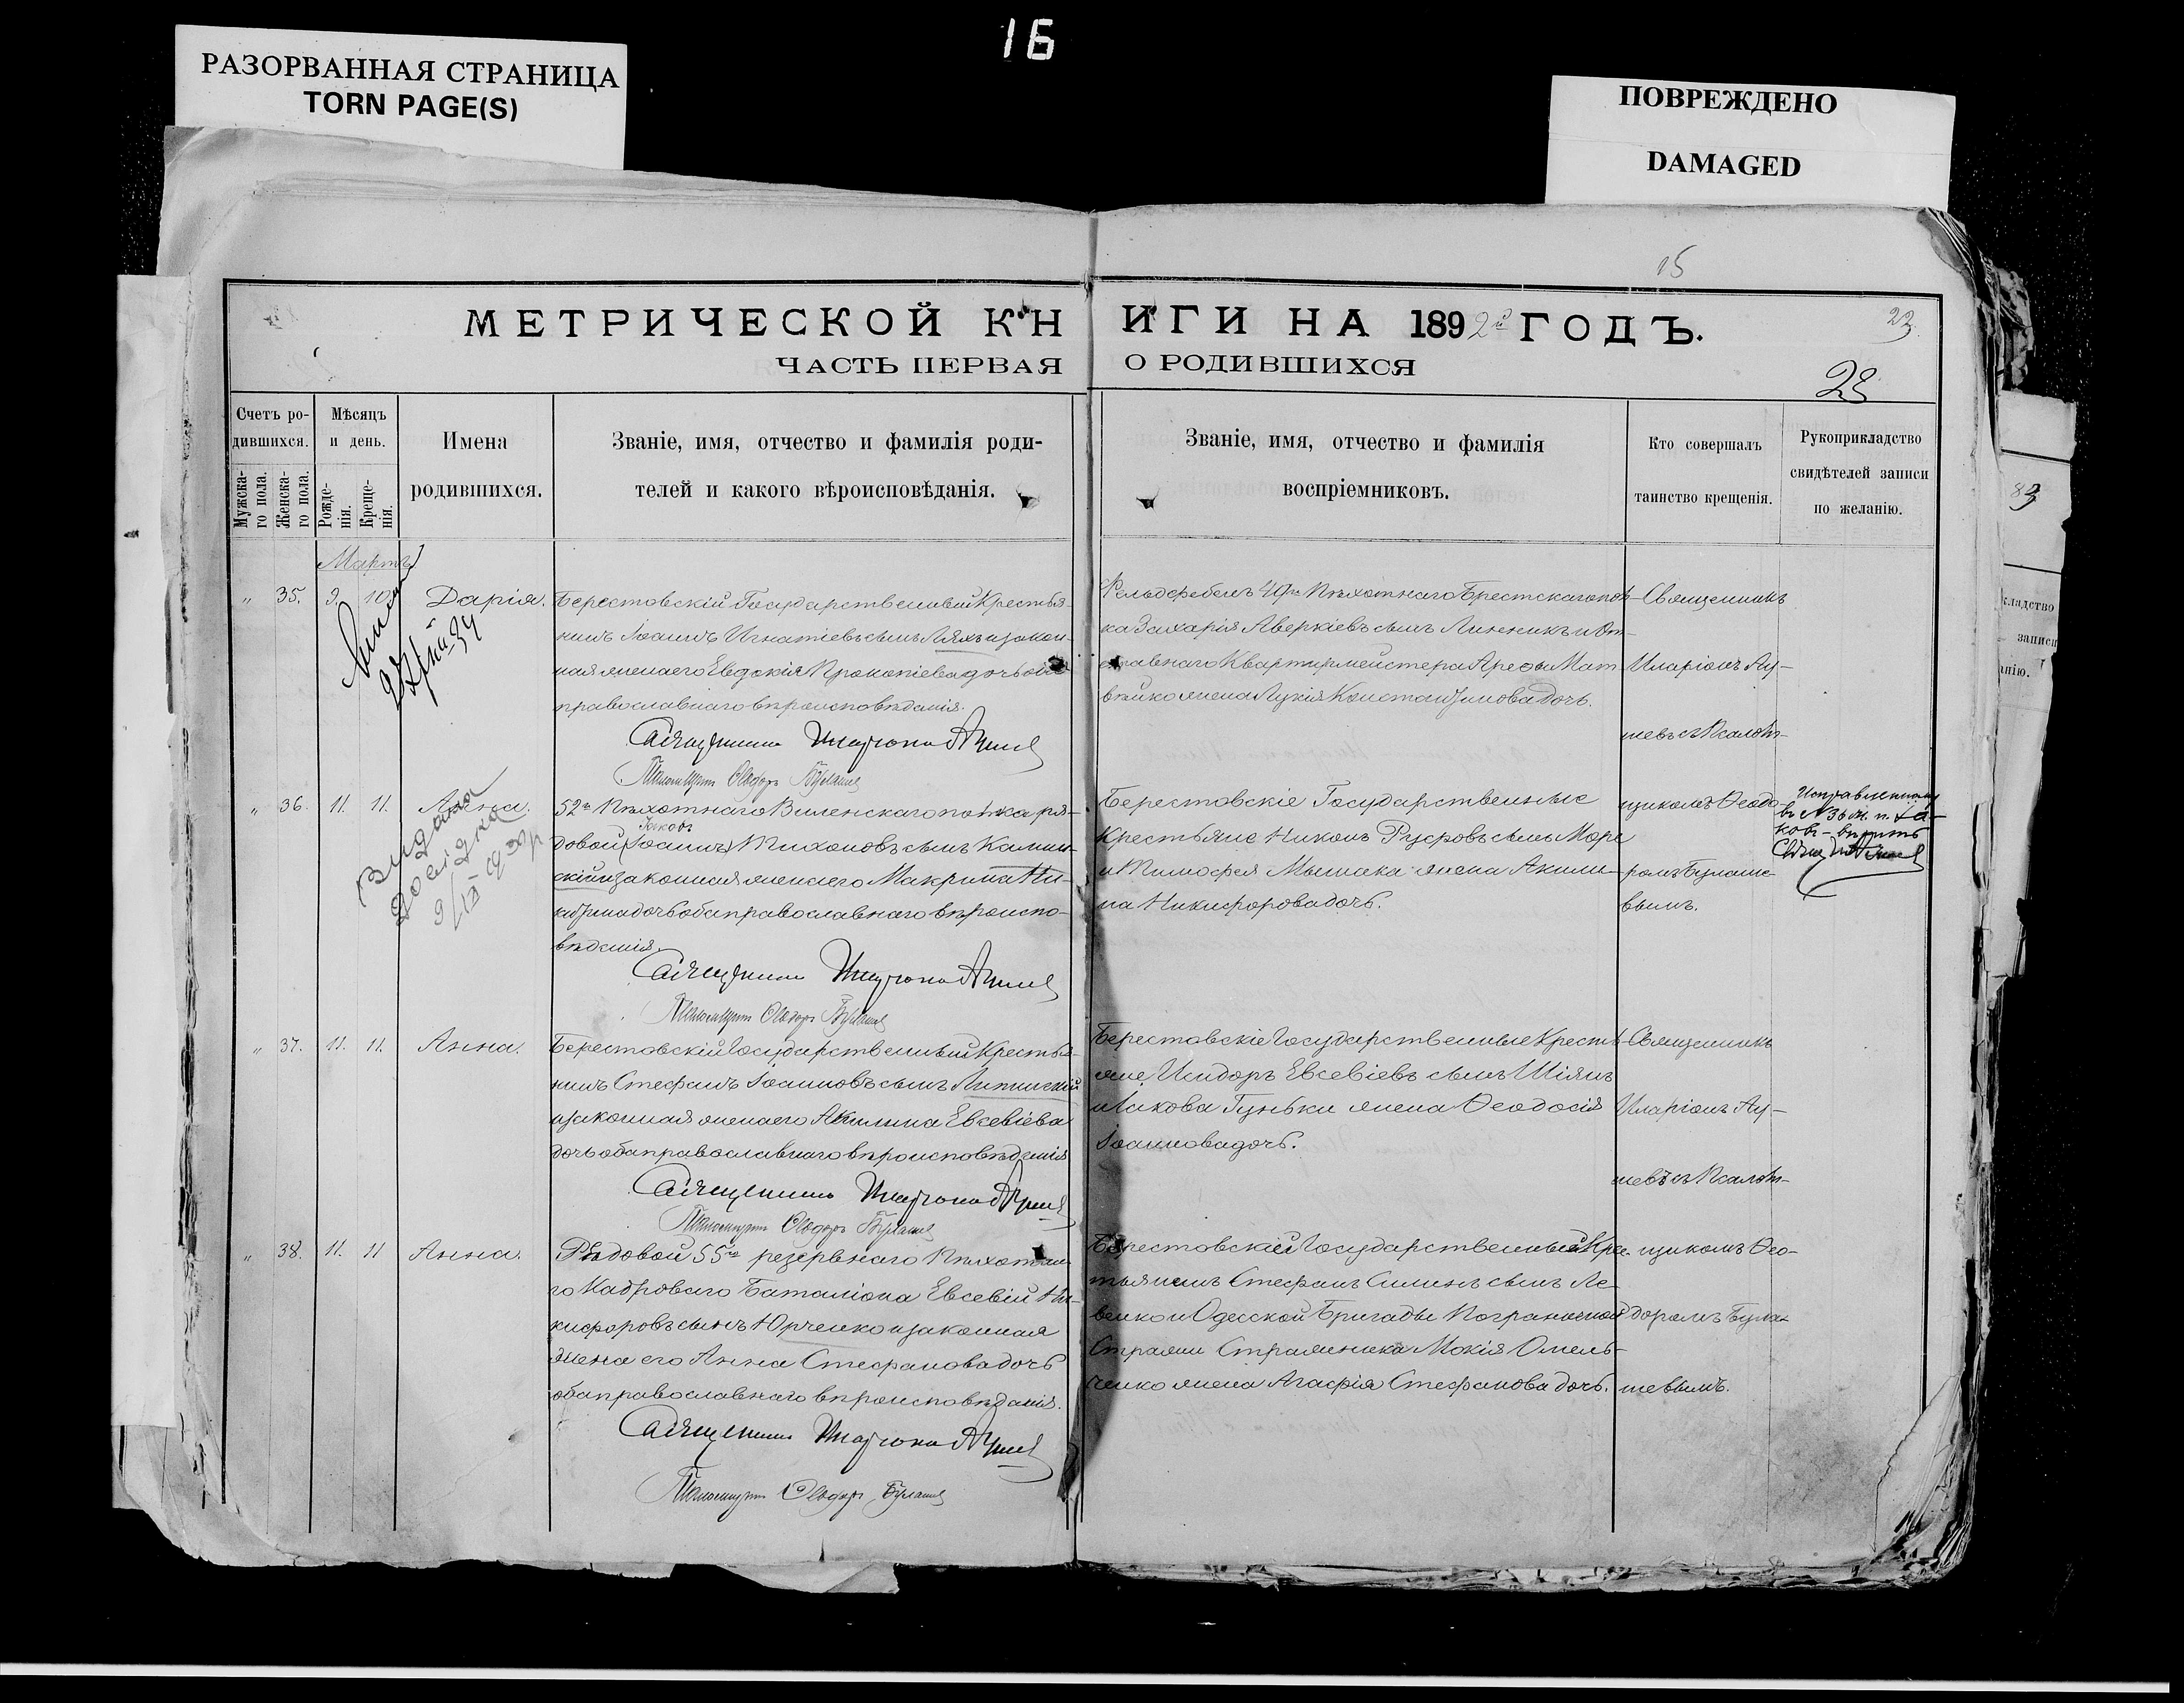 16
РАЗОРВАННАЯ СТРАНИЦА
TORN PAGE(S)
ПОВРЕЖДЕНО
DAMAGED
15
МЕТРИЧЕСКОЙ КНИГИ НА 1892й ГОДЪ.
23
ЧАСТЬ ПЕРВАЯ О РОДИВШИХСЯ
23
Счетъ родившихся.
Мужскаго пола.
Женскаго пола.
Мѣсяцъ и день.
Рожденія.
Крещенія.
Имена родившихся.
Званіе, имя, отчество и фамилія роди-
телей и какого вѣроисповѣданія.
Званіе, имя, отчество и фамилія
воспріемниковъ.
Кто совершалъ
таинство крещенія.
Рукоприкладство
свидѣтелей записи
по желанію.
Мартъ
" 35. 9. 10. Дарія.
Берестовскій Государственный Крестья-
нинъ Іоаннъ Игнатіевъ сынъ Ляхъ и закон-
ная жена его Евдокія Прокопіева дочь оба
православнаго вѣроисповѣданія.
Священникъ Иларіонъ
Псаломщикъ Ѳеодоръ
Фельдфебель 49го Пѣхотнаго Брестскаго пол-
ка Захарія Аверкіевъ сынъ Линникъ и От-
ставнаго Квартирмейстера Арефы Мат
вѣйко жена Лукія Константинова дочь.
Священникъ
Иларіонъ Ау-
шевъ съ Псалом-
" 36. 11. 11. Анна.
Видана
довідка
52го Пѣхотнаго Виленскаго полка ря-
Іаковъ
довой (Іоаннъ) Тихоновъ сынъ Калин-
скій и законная жена его Макрина Ни-
кодрина дочь оба православнаго вѣроиспо-
вѣданія.
Священникъ Иларіонъ
Псаломщикъ Ѳеодоръ
Берестовскіе Государственные
Крестьяне Никонъ Руфовъ сынъ Море
и Тимофея Мышака жена Акили-
на Никифорова дочь.
щикомъ Ѳеодо-
ромъ Булаше-
вымъ.
Исправленному
въ № 36 ж. п. Іа-
ковъ - вѣрить
" 37. 11. 11. Анна.
Берестовскій Государственный Крестья-
нинъ Стефанъ Іоанновъ сынъ Липинскій
и законная жена его Акилина Евсевіева
дочь оба православнаго вѣроисповѣданія
Священникъ Иларіонъ
Псаломщикъ Ѳеодоръ
Берестовскіе Государственные Кресть-
яне, Исидоръ Евсевіевъ сынъ Шіянъ
и Іакова Гунька жена Ѳеодосія
Іоаннова дочь.
Священникъ
Иларіонъ Ау-
шевъ съ Псалом-
" 38. 11. 11 Анна.
Рядовой 55го резервнаго Пѣхотна-
го Кадроваго Баталіона Евсевій Ни-
кифоровъ сынъ Юрченко и законная
жена его Анна Стефанова дочь
оба православнаго вѣроисповѣданія.
Священникъ Иларіонъ
Псаломщикъ Ѳеодоръ
Берестовскій Государственный Крес-
тьянинъ Стефанъ Симинъ сынъ Ле-
венко и Одесской Бригады Пограничной
Стражи Стражника Мокія Омель-
ченко жена Агафія Стефанова дочь.
щикомъ Ѳео-
доромъ Була-
шевымъ.